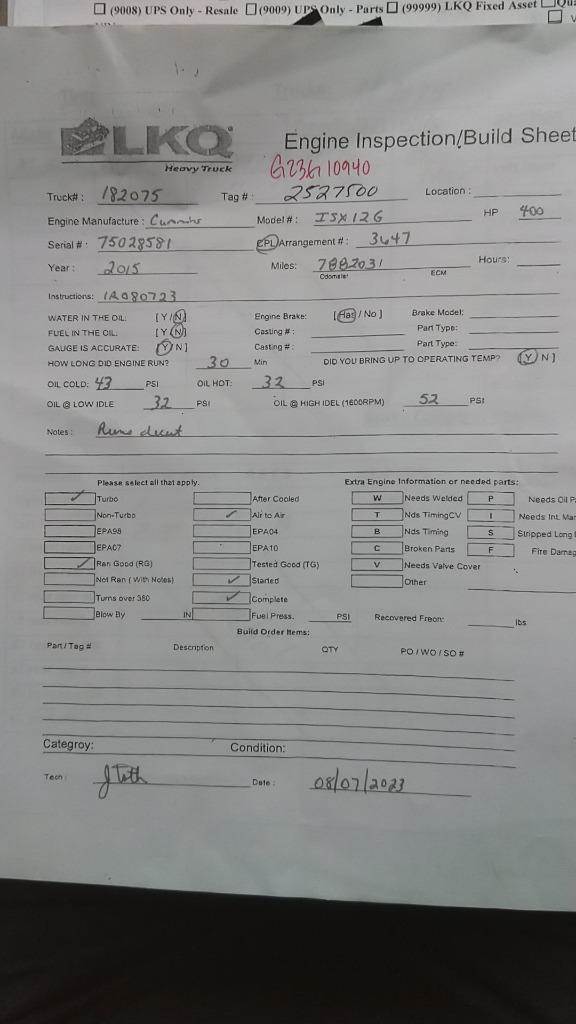 ☐ (9008) UPS Only - Resale ☐ (9009) UPS Only - Parts ☐ (99999) LKQ Fixed Asset
LKQ
Heavy Truck
Engine Inspection/Build Sheet
G23G10940
Truck# : 182075 Tag # : 2527500 Location :
Engine Manufacture : Cummins Model # : ISX12G HP 400
Serial # : 75028581 CPL Arrangement # : 3647
Year : 2015 Miles: 7882031 Hours:
Odometer ECM
Instructions: IR080723
WATER IN THE OIL: [Y/N] Engine Brake: [Has / No ] Brake Model:
FUEL IN THE OIL: [Y N] Casting # : Part Type:
GAUGE IS ACCURATE: [Y N ] Casting # : Part Type:
HOW LONG DID ENGINE RUN? 30 Min DID YOU BRING UP TO OPERATING TEMP? (Y N ]
OIL COLD: 43 PSI OIL HOT: 32 PSI
OIL @ LOW IDLE 32 PSI OIL @ HIGH IDEL (1600RPM) 52 PSI
Notes : Runs decent
Please select all that apply. Extra Engine Information or needed parts:
✓ Turbo After Cooled W Needs Welded P Needs Oil P
Non-Turbo ✓ Air to Air T Nds TimingCV I Needs Int. Man
EPA98 EPA04 B Nds Timing S Stripped Long
EPAC7 EPA10 C Broken Parts F Fire Damag
✓ Ran Good (RG) Tested Good (TG) V Needs Valve Cover
Not Ran ( With Notes) ✓ Started Other
Turns over 360 ✓ Complete
Blow By IN Fuel Press. PSI Recovered Freon: lbs
Build Order Items:
Part / Tag # Description QTY PO / WO / SO #
Categroy: Condition:
Tech : J Toth Date : 08/07/2023